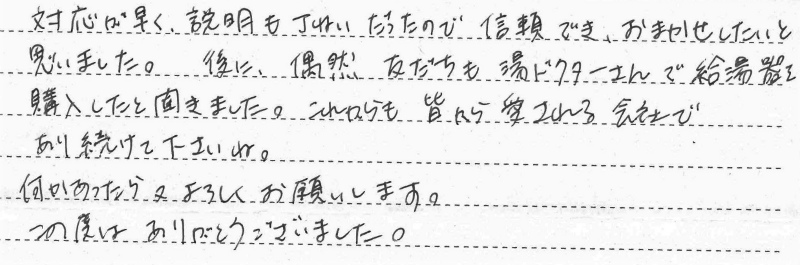 対応が早く、説明も丁ねいだったので信頼でき、おまかせしたいと
思いました。後に、偶然友だちも湯ドクターさんで給湯器を
購入したと聞きました。これからも皆から愛される会社で
あり続けて下さいね。
何かあったら又よろしくお願いします。
この度はありがとうございました。